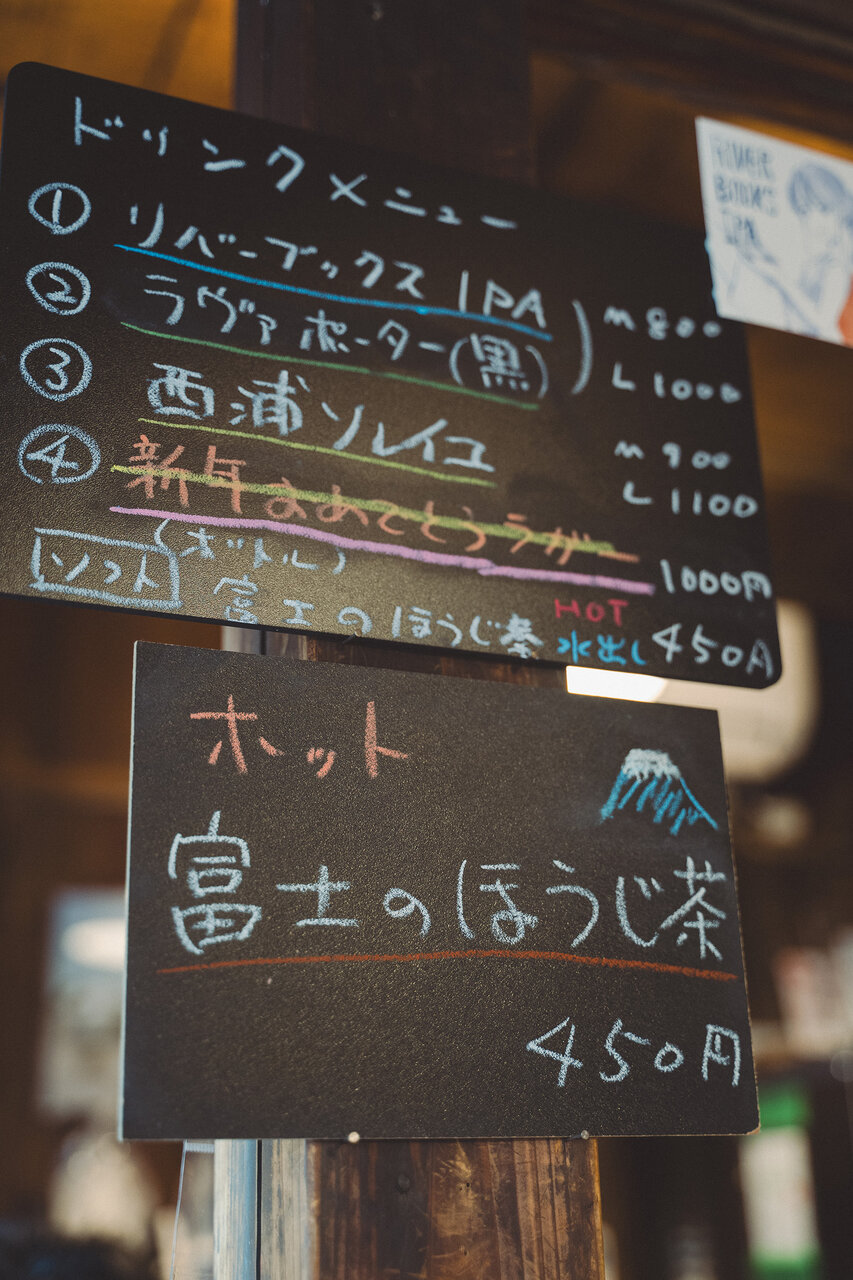 ドリンクメニュー
① リバーブックス IPA
② ラヴァポーター(黒)
M 800
L 1000
③ 西浦ソレイユ
M 900
L 1100
④ 新年おめでとうラガー
(ボトル) 1000円
ソフト 富士のほうじ茶 HOT 水出し 450円
RIVER
BOOKS
IPA
ホット
富士のほうじ茶
450円